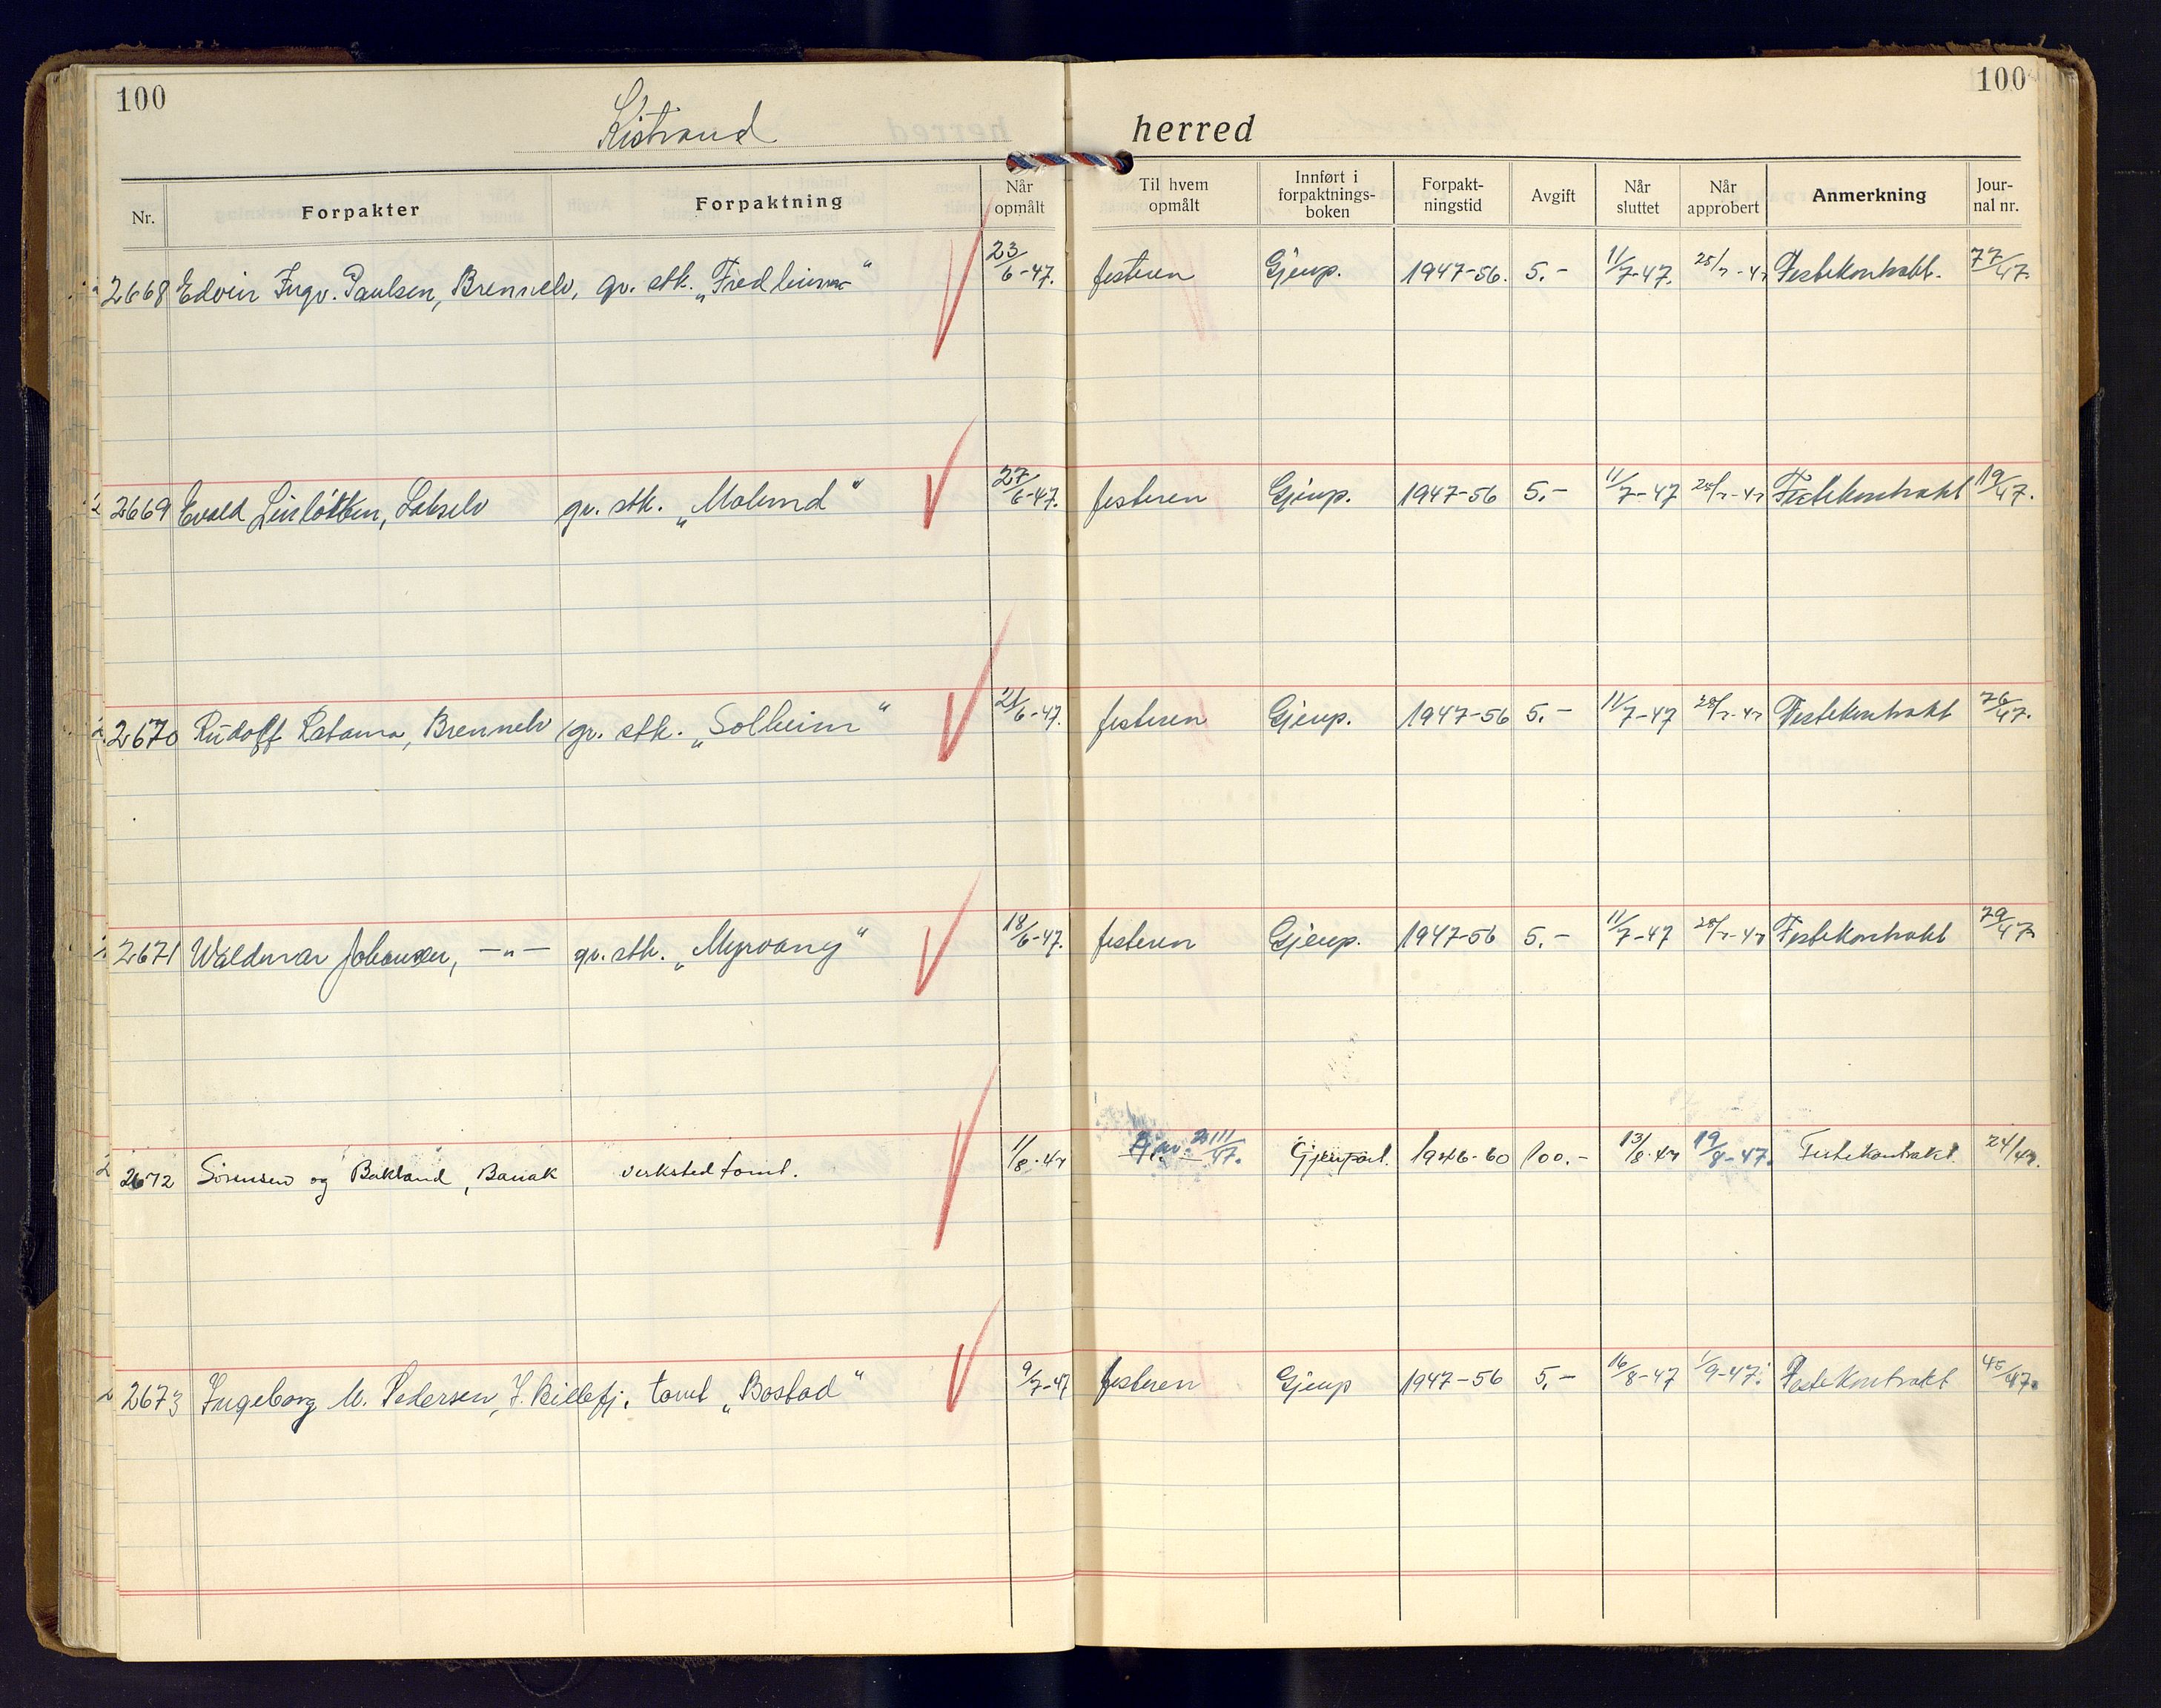 100
100
Kistrand herred
Nr. Forpakter Forpaktning Når opmålt Til hvem opmålt Innført i forpaktnings-boken Forpakt-ningstid Avgift Når sluttet Når approbert Anmerkning Jour-nal nr.
2668 Edvin Ingv. Paulsen, Brennelv, gr. stk. „Fredheim“ 23/6-47. festeren Gjenp. 1947-56. 5.- 11/7-47. 28/7-47 Festekontrakt. 77/47.
2669 Evald , Lakselv gr. stk. „Molund“ 27/6-47. festeren Gjenp. 1947-56 5.- 11/7-47 28/7-47 Festekontrakt 19/47.
2670 Rudolf Ratama, Brennelv gr. stk. „Solheim“ 21/6-47. festeren Gjenp. 1947-56 5.- 11/7-47 28/7-47 Festekontrakt 76/47.
2671 Waldmar Johansen, -"- gr. stk. „Myrvang“ 18/6-47. festeren Gjenp. 1947-56 5.- 11/7-47 28/7-47 Festekontrakt 79/47
2672 Sørensen og Bakland, Banak verksted tomt. 11/8-47 Gjenpart. 1946-60 100.- 13/8-47 19/8-47. Festekontrakt. 24/47.
2673 Ingeborg M. Pedersen, I. Billefj. tomt „Bostad“ 9/7-47 festeren Gjenp 1947-56 5.- 16/8-47 1/9-47. Festekontrakt 45/47.